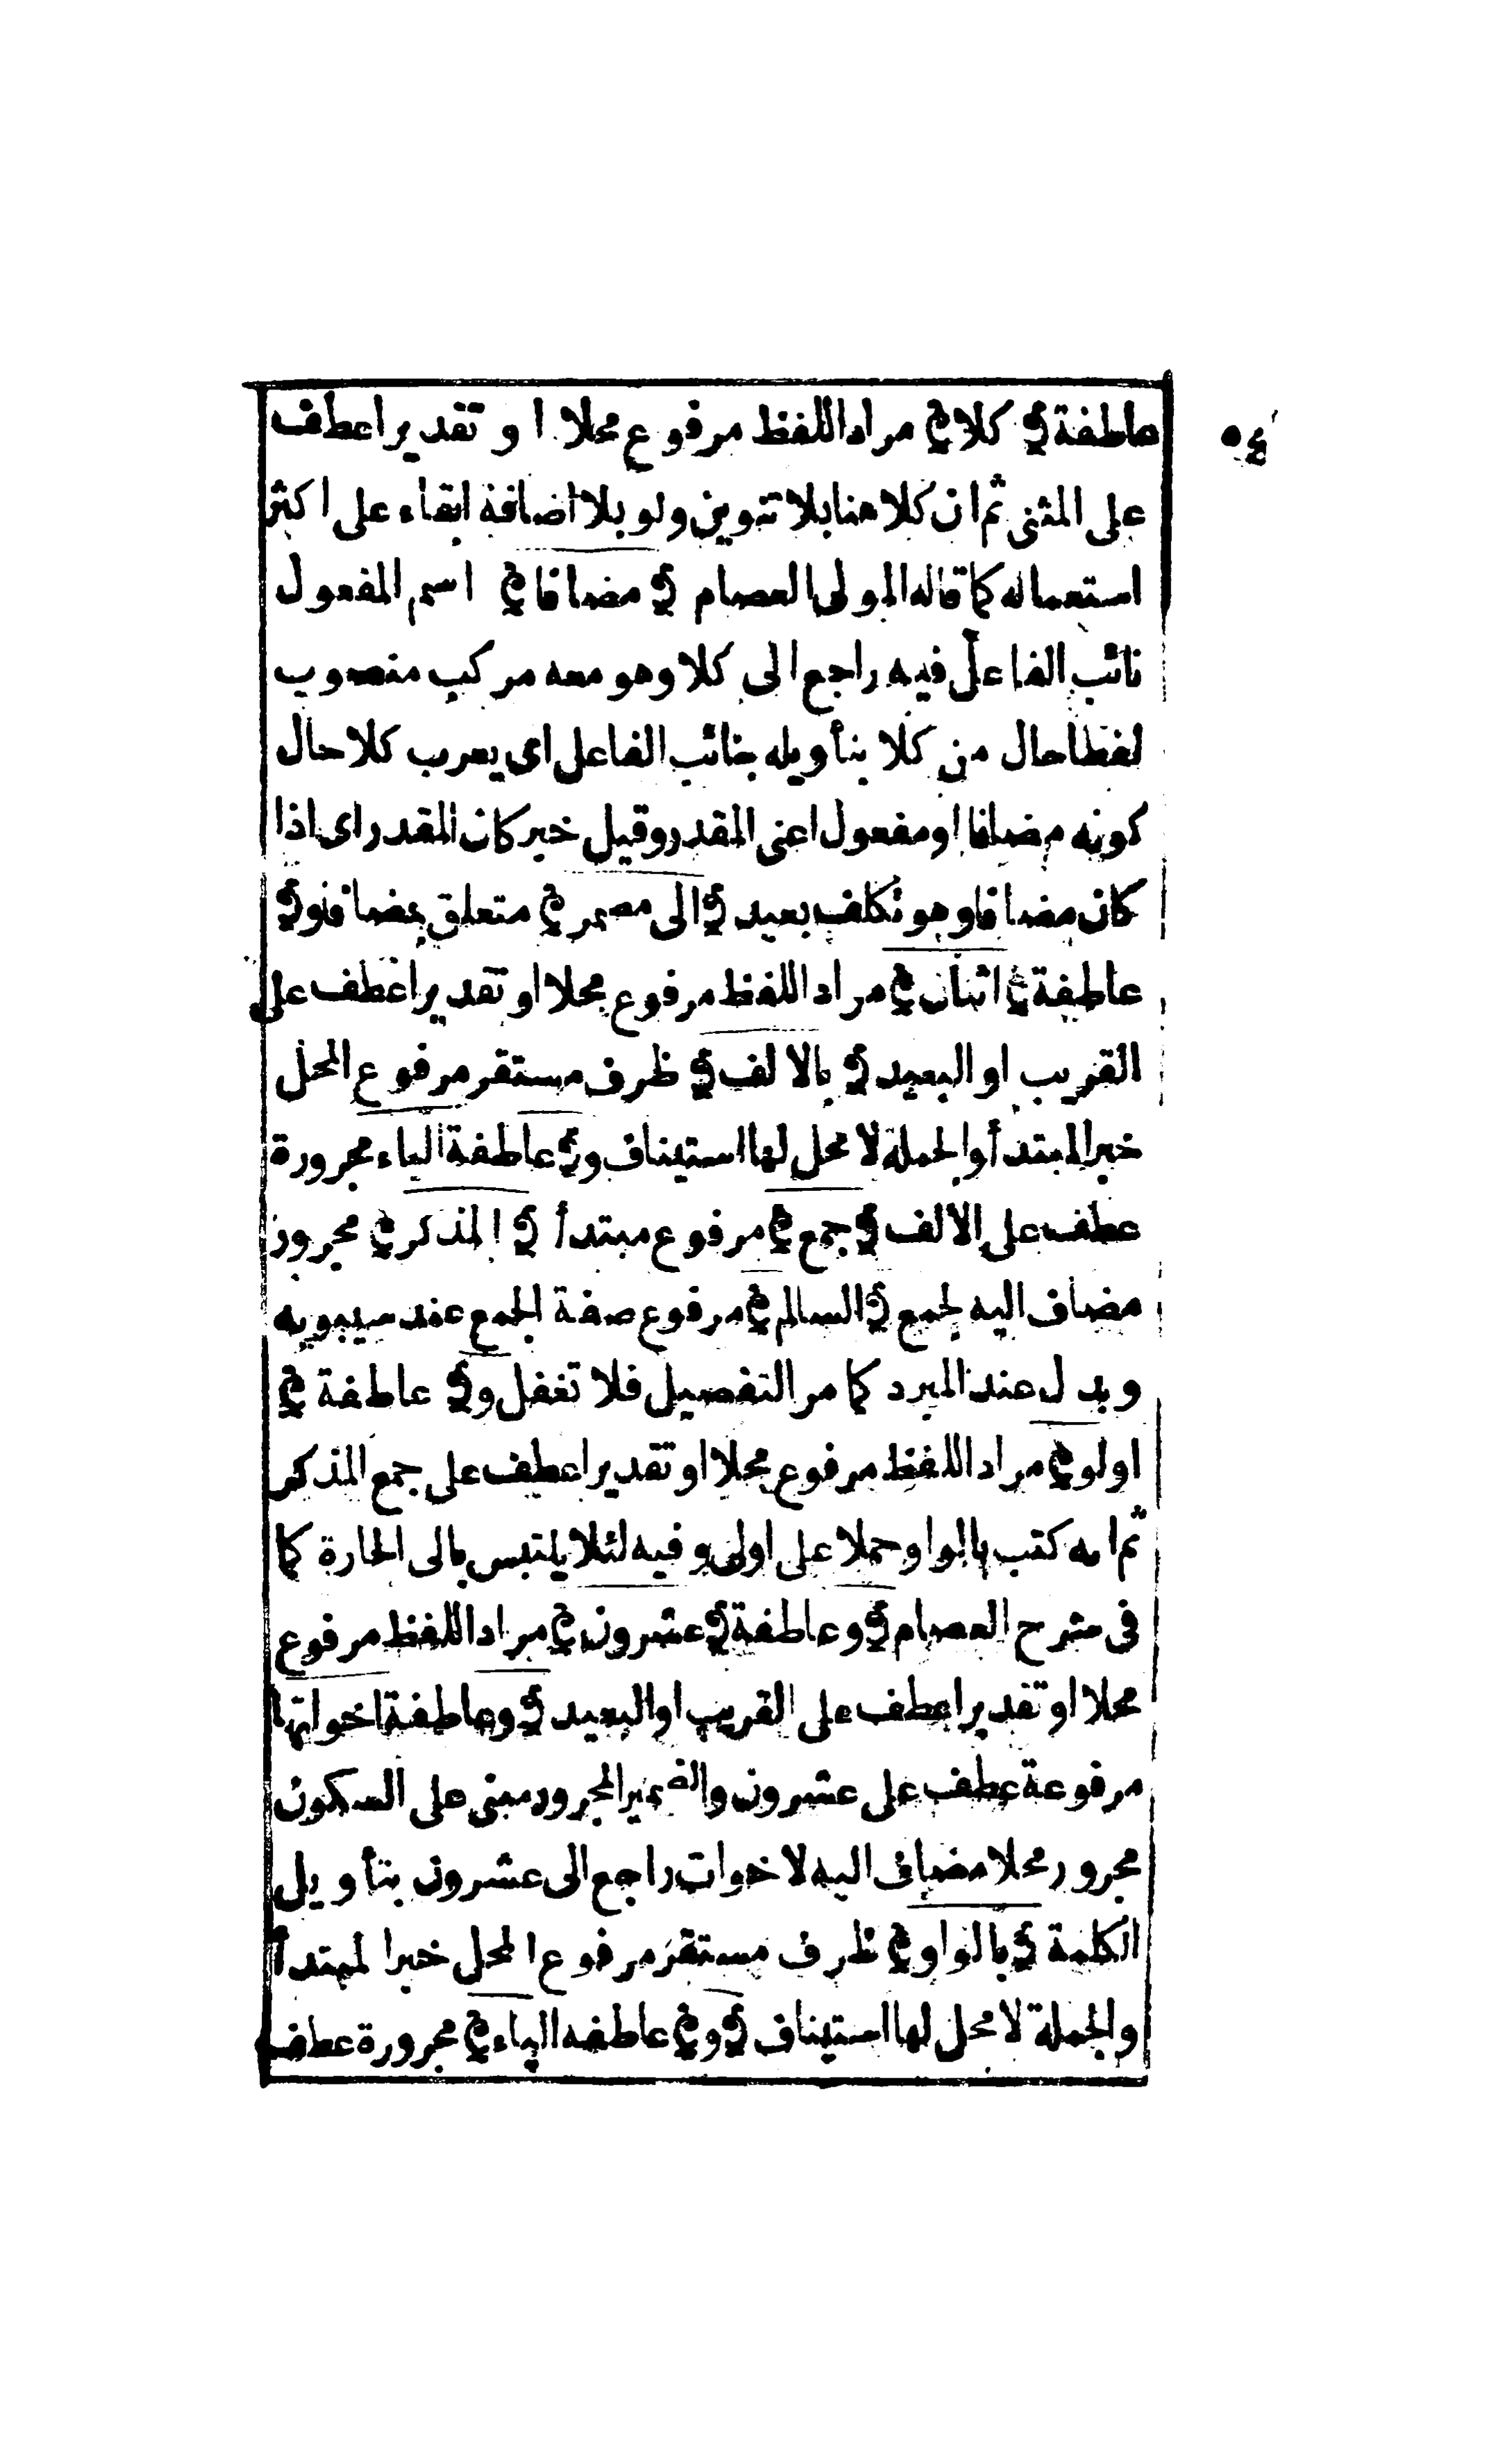 عاطفة ﴿ كلا ﴾ مراد اللفظ مرفوع محلا ا و تقديرا عطف
٤٥
على المثنى ثم ان كلا هنا بلا تنوين ولو بلا اضافة ابقاء على اكثر
استعماله كما قاله المولى العصام ﴿ مضافا ﴾ اسم المفعول
نائب الفاعل فيه راجع الى كلا وهو معه مركب منصوب
لفظا حال من كلا بتأويله بنائب الفاعل اى يعرب كلا حال
كونه مضافا او مفعول اعنى المقدر وقيل خبر كان المقدر اى اذا
كان مضافا وهو تكلف بعيد ﴿ الى مضمر ﴾ متعلق بمضافا و﴿
عاطفة ﴾ اثنان ﴾ مراد اللفظ مرفوع محلا او تقديرا عطف على
القريب او البعيد ﴿ بالالف ﴾ ظرف مستقر مرفوع المحل
خبر المبتدأ والجملة لا محل لها استيناف و﴾ عاطفة الياء مجرورة
عطف على الالف ﴿ جمع ﴾ مرفوع مبتدأ ﴿ المذكر ﴾ مجرور
مضاف اليه لجمع ﴿ السالم ﴾ مرفوع صفة الجمع عند سيبويه
وبدل عند المبرد كما مر التفصيل فلا تغفل و﴿ عاطفة ﴾
اولو ﴾ مراد اللفظ مرفوع محلا او تقديرا عطف على جمع المذكر
ثم انه كتب بالواو حملا على اولى وفيه لئلا يلتبس بالى الجارة كما
فى شرح العصام ﴿ و عاطفة ﴿ عشرون ﴾ مراد اللفظ مرفوع
محلا او تقديرا عطف على القريب او البعيد ﴿ و عاطفة اخواتها
مرفوعة عطف على عشرون والضمير المجرور مبنى على السكون
مجرور محلا مضاف اليه لاخوات راجع الى عشرون بتأويل
الكلمة ﴿ بالواو ﴾ ظرف مستقر مرفوع المحل خبر المبتدأ
والجملة لا محل لها استيناف ﴿ و ﴾ عاطفه الياء ﴾ مجرورة عطف